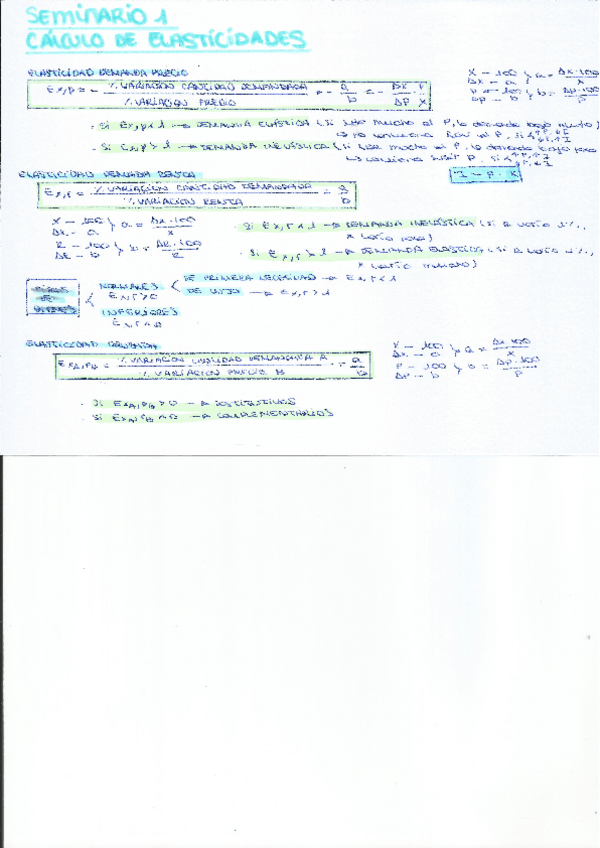 SEMINARIO 1
CÁLCULO DE ELASTICIDADES
ELASTICIDAD DEMANDA PRECIO
Ex,p = - % VARIACION CANTIDAD DEMANDADA / % VARIACION PRECIO = - a/b = - ΔX/ΔP · P/X
X — 100
ΔX — a } a = ΔX·100/X
P — 100
ΔP — b } b = ΔP·100/P
· Si Ex,p < 1 → DEMANDA ELÁSTICA (si sube mucho el P, la demanda baja mucho)
→ no conviene subir el P. Si
· Si Ex,p > 1 → DEMANDA INELÁSTICA (si sube mucho el P, la demanda baja poco)
→ conviene subir P. Si
I = P · X
ELASTICIDAD DEMANDA RENTA
Ex,r = % VARIACION CANTIDAD DEMANDADA / % VARIACION RENTA = a/b
X — 100
ΔX — a } a = ΔX·100/X
R — 100
ΔR — b } b = ΔR·100/R
· Si Ex,r < 1 → DEMANDA INELÁSTICA (si R varía 1%, X varía poco)
· Si Ex,r > 1 → DEMANDA ELÁSTICA (si R varía 1%, X varía mucho)
TIPOS DE BIENES
NORMALES Ex,r > 0
DE PRIMERA NECESIDAD → Ex,r < 1
DE LUJO → Ex,r > 1
INFERIORES
Ex,r < 0
ELASTICIDAD CRUZADA
ExA,PB = % VARIACION CANTIDAD DEMANDADA A / % VARIACION PRECIO B = a/b
X — 100
ΔX — a } a = ΔX·100/X
P — 100
ΔP — b } b = ΔP·100/P
· Si ExA,PB > 0 → SUSTITUTIVOS
· Si ExA,PB < 0 → COMPLEMENTARIOS